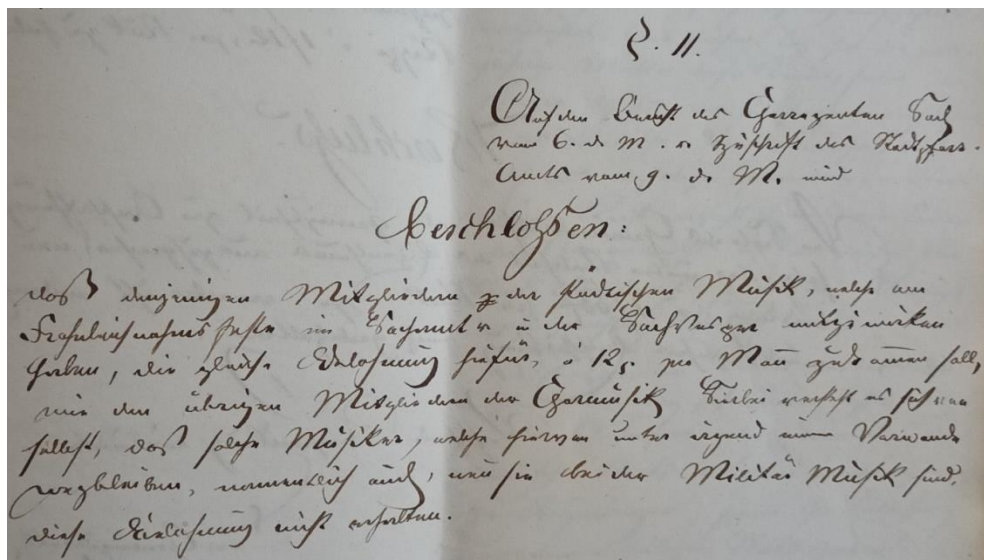 §. 11.
Auf den Bericht des Chorregenten Bach
vom 6. d. M. u Zuschrift des Stadtpfarr-
Amts vom 9. d. M. wird
beschlossen:
daß denjenigen Mitgliedern der städtischen Musik, welche am
Frohnleichnamsfeste im Hochamt u in der Vesper mitgewirkt
haben, die gleiche Belohnung hiefür, à 12 pro Mañ zukomen soll,
wie den übrigen Mitgliedern der Chormusik Hierbei versteht es sich von
selbst, daß solche Musiker, welche hievon unter irgend einem Vorwande
wegbleiben, namentlich auch, weñ sie bei der Militär Musik sind,
diese Belohnung nicht erhalten.